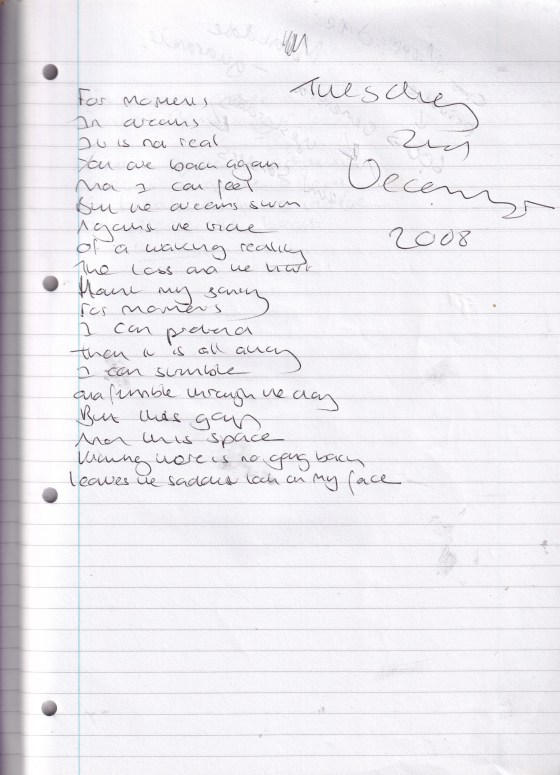 Tuesday
2nd
December
2008
For moments
In dreams
It is not real
You are back again
And I can feel
But the dreams swim
Against the tide
Of a waking reality
The loss and the hurt
Haunt my sanity
For moments
I can pretend
that it is all away
I can stumble
and fumble through the day
But this gap
And this space
Knowing there is no going back
leaves the saddest look on my face